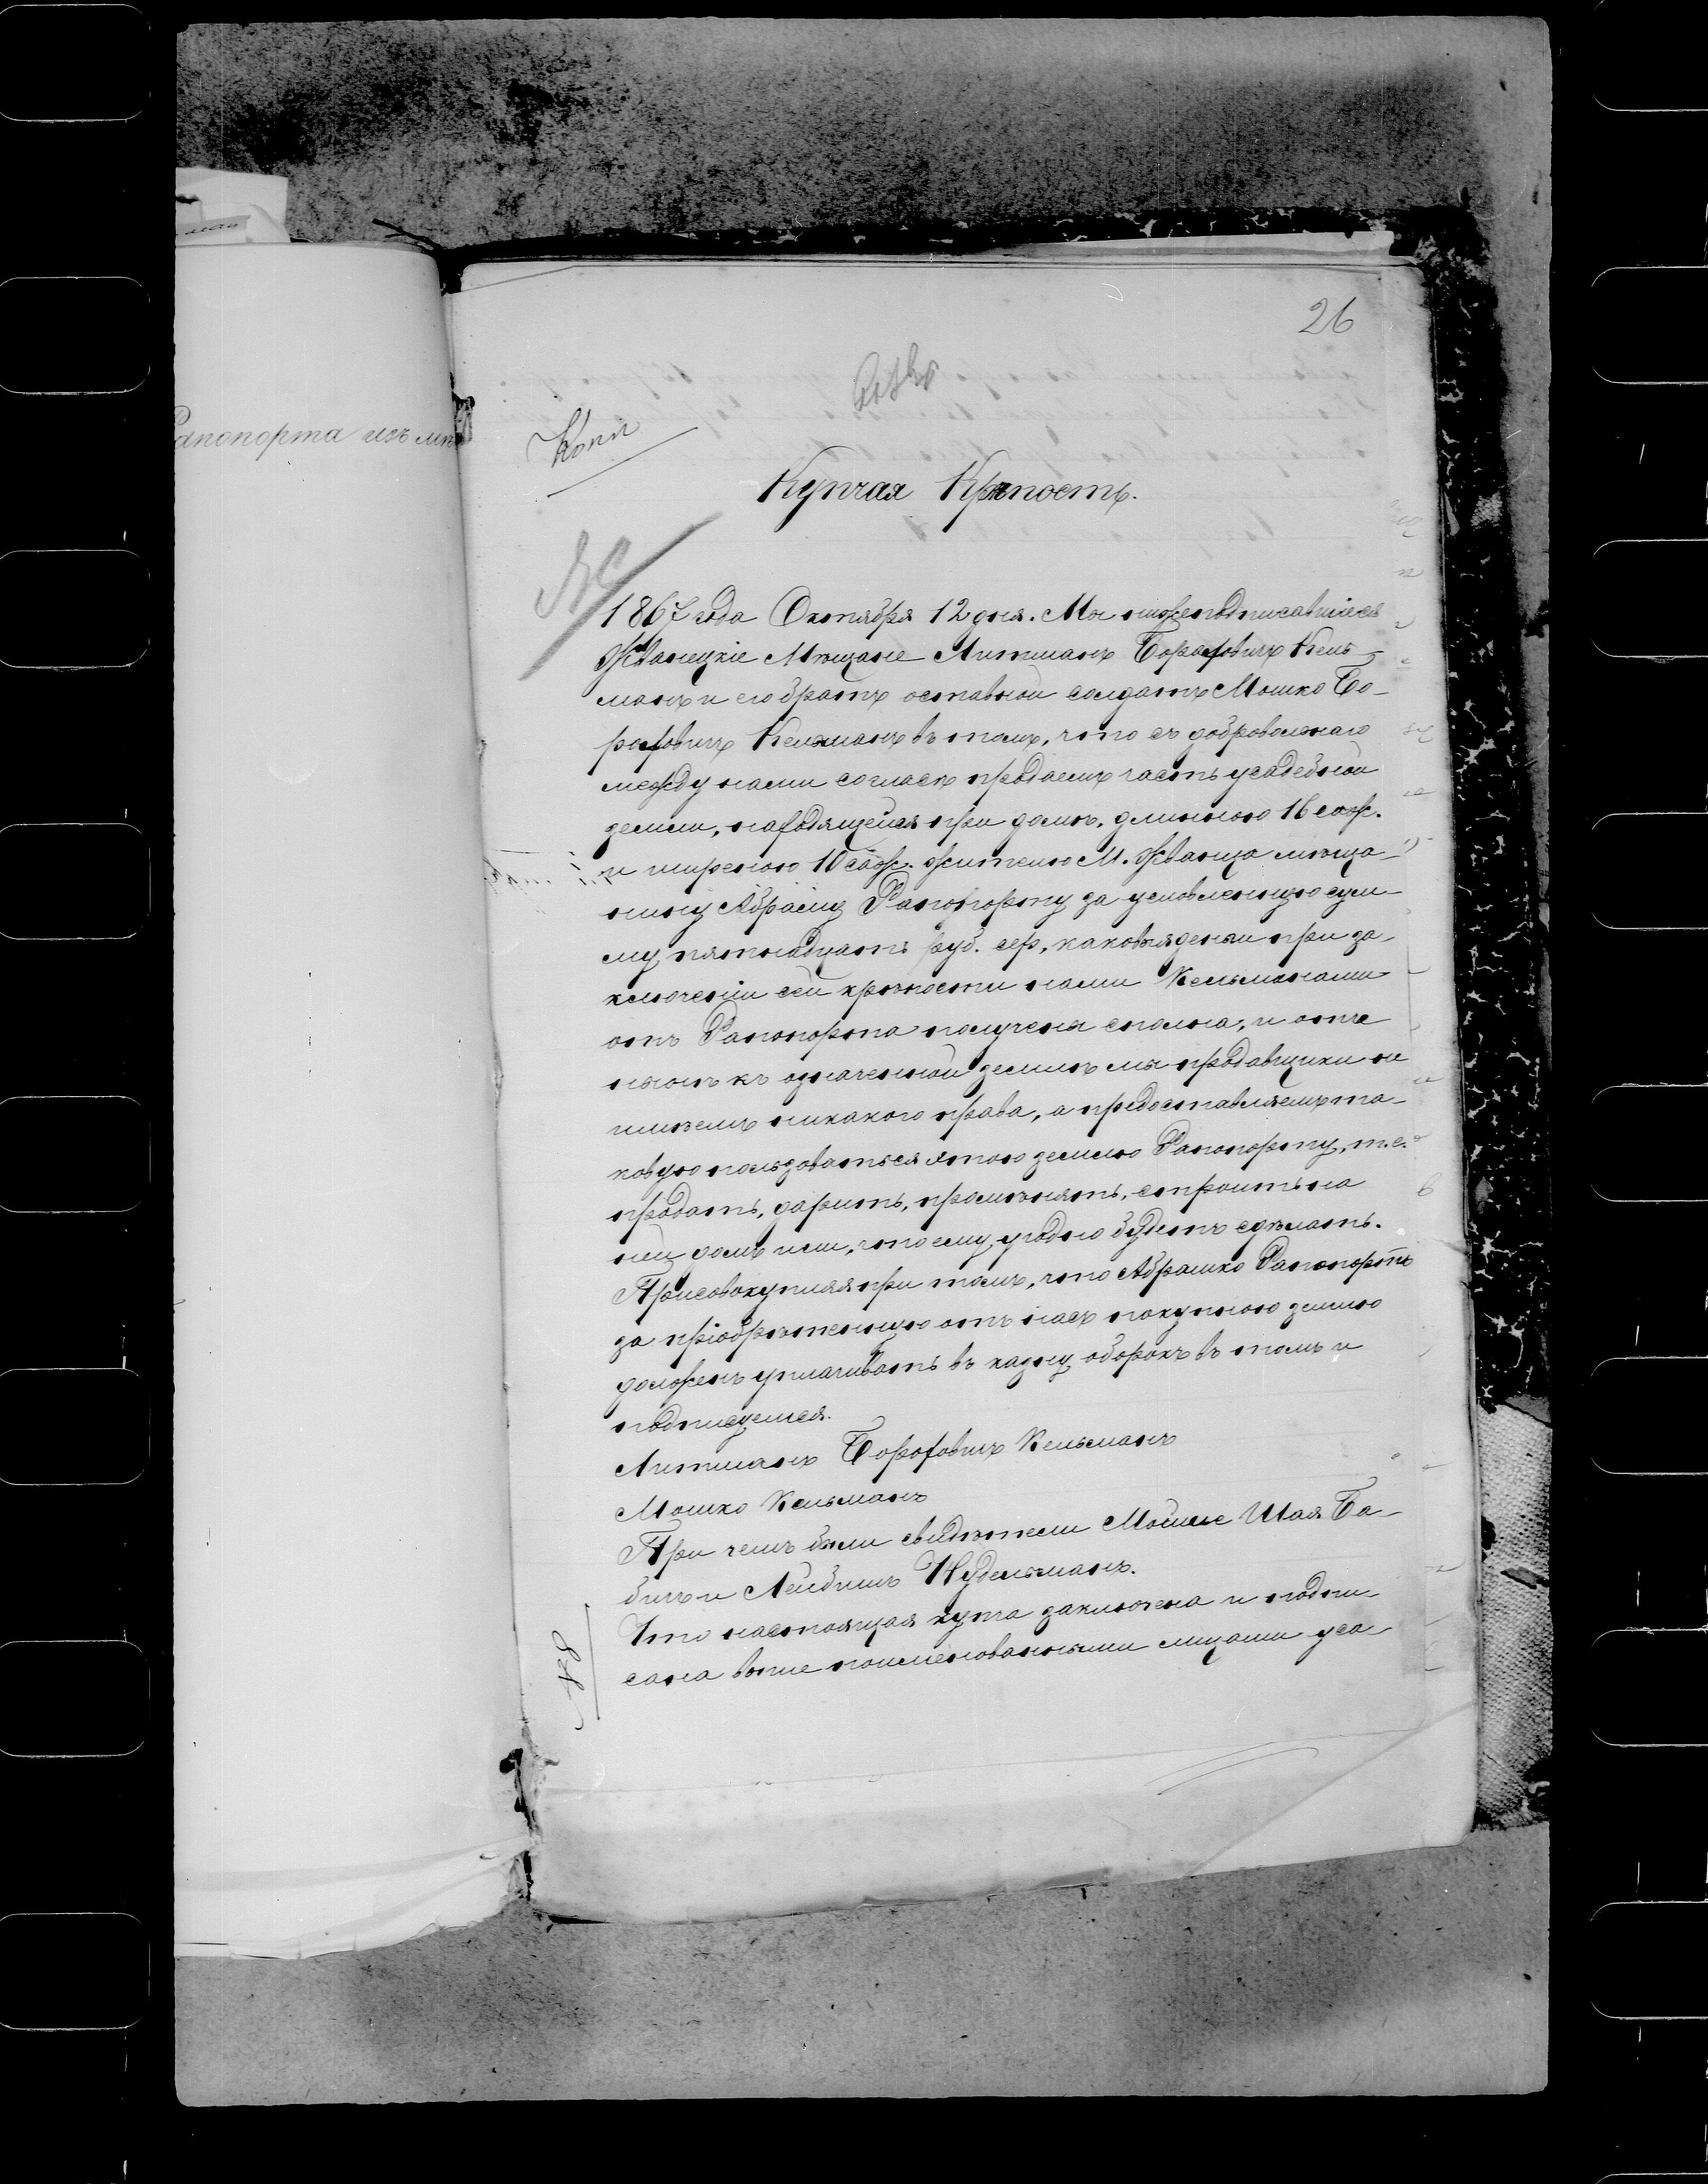 26
Копія
Купчая Крѣпость.
1867 года Октября 12 дня. Мы нижеподписавшіеся
Жванецкіе Мѣщане Литманъ Бороховичъ Кель-
манъ и его братъ оставной солдатъ Мошко Бо-
роховичъ Кельманъ въ томъ, что съ добровольнаго
между нами согласія продаемъ часть усадебной
земли, находящейся при домѣ, длиною 16 саж.
и шириною 10 саж. жителю М. Жванца мѣща-
нину Абраму Рапопорту за условленную сум-
му пятнадцать руб. сер, каковыя деньги при за-
ключеніи сей крѣпости нами Кельманами
отъ Рапопорта получены сполна, и отны
нынѣ къ означенной землѣ мы продавщики не
имѣемъ никакого права, а предоставляемъ та-
ковую пользоваться этою землею Рапопорту, т.е.
продать, дарить, промѣнять, строить на
ней домъ или, что ему угодно будетъ сдѣлать.
Присовокупляя при томъ, что Абрашко Рапопортъ
за пріобрѣтенную отъ насъ покупною землю
долженъ уплачивать въ казну оброкъ въ томъ и
подписуемся.
Литманъ Бороховичъ Кельманъ
Мошко Кельманъ
При чемъ были свидѣтели Мойше Шая Ба-
бичъ и Лейбишъ Нудельманъ.
Что настоящая купча заключена и подпи-
сана выше поименованными лицами уса-
Рапопорта изъ мѣ